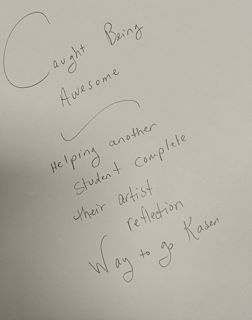 Caught Being
Awesome
Helping another
student complete
their artist
reflection
Way to go Kasen